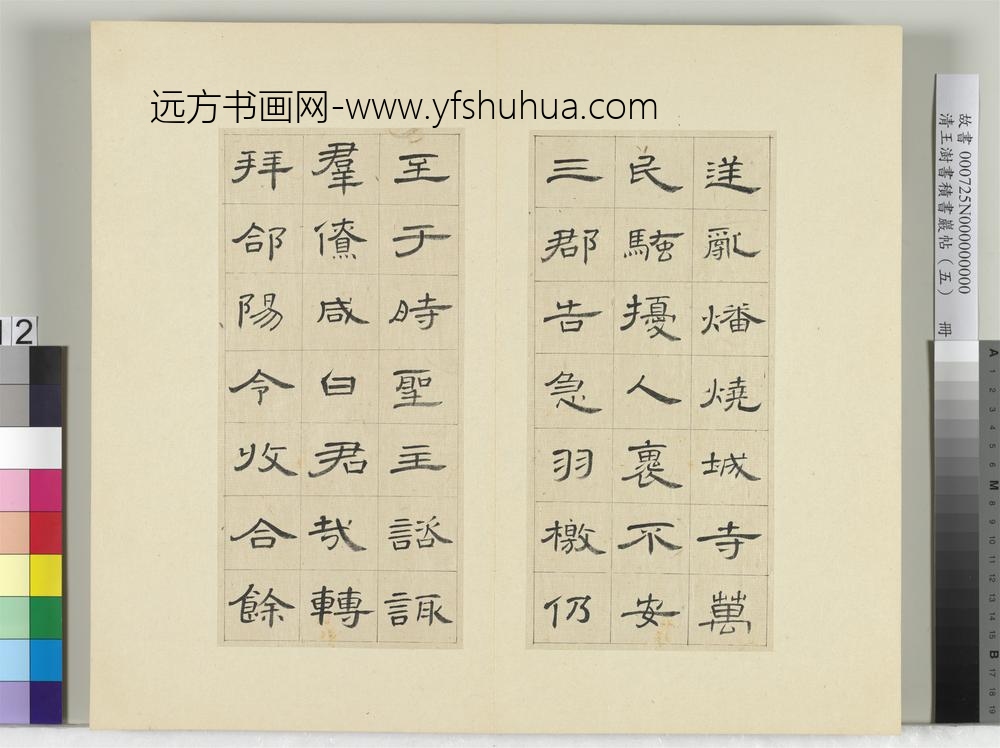 远方书画网-www.yfshuhua.com
逆亂燔燒城寺萬
民騷擾人裹不安
三郡告急羽檄仍
至于時聖主諮諏
羣僚咸曰君哉轉
拜郃陽令收合餘
故書 000725N000000000
清王澍書積書巖帖(五) 冊
12
A 1 2 3 4 5 6 M 8 9 10 11 12 13 14 15 B 17 18 19